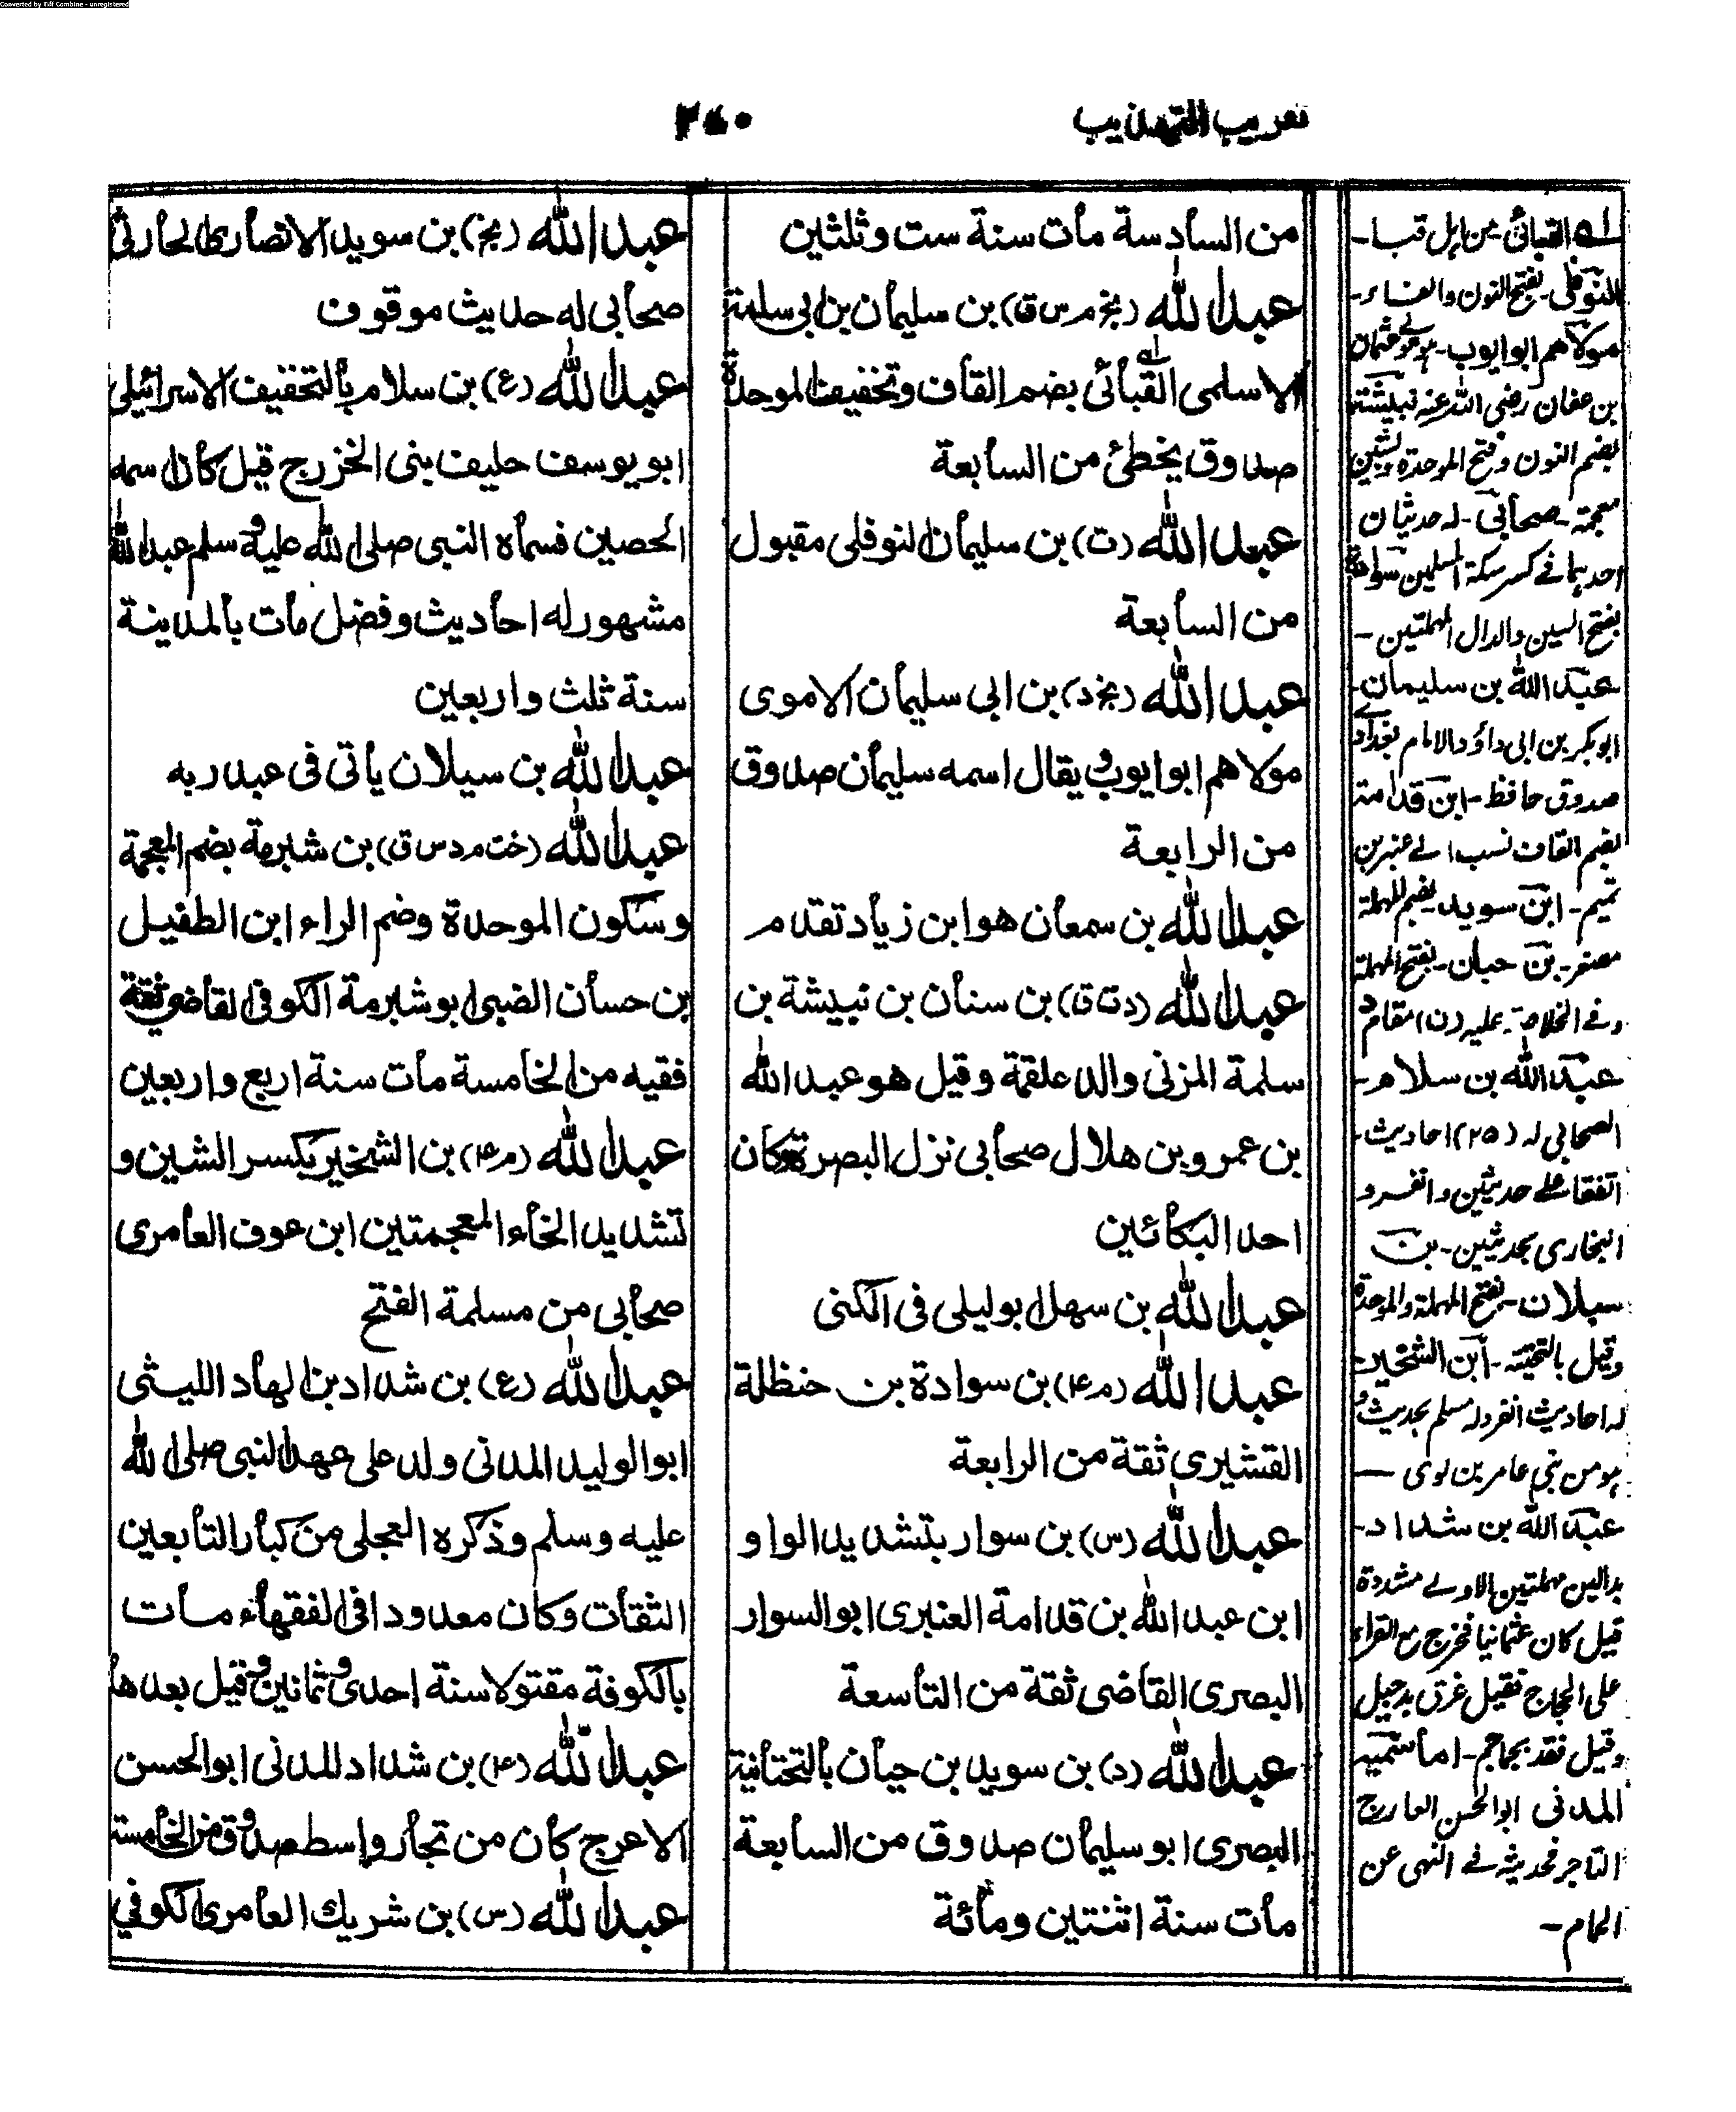 Converted by Tiff Combine - unregistered
تقريب التهذيب
من السادسة مات سنة ست وثلثين
عبد الله (بخ م س ق) بن سليمان بن ابى سلمة
الاسلمى القبائى بضم القاف وتخفيف الموحدة
صدوق يخطئ من السابعة
عبد الله (ت) بن سليمان النوفلى مقبول
من السابعة
عبد الله (بخ د) بن ابى سليمان الاموى
مولاهم ابو ايوب ويقال اسمه سليمان صدوق
من الرابعة
عبد الله بن سمعان هو ابن زياد تقدم
عبد الله (د ت ق) بن سنان بن نبيشة بن
سلمة المزنى والد علقمة وقيل هو عبد الله
بن عمرو بن هلال صحابى نزل البصرة وكان
احد البكائين
عبد الله بن سهل ابو ليلى فى الكنى
عبد الله (م ۴) بن سوادة بن حنظلة
القشيرى ثقة من الرابعة
عبد الله (س) بن سوار بتشديد الواو
ابن عبد الله بن قدامة العنبرى ابو السوار
البصرى القاضى ثقة من التاسعة
عبد الله (د) بن سويد بن حيان بالتحتانية
البصرى ابو سليمان صدوق من السابعة
مات سنة اثنتين ومائة
عبد الله (بخ) بن سويد الانصارى الحارثى
صحابى له حديث موقوف
عبد الله (ع) بن سلام بالتخفيف الاسرائيلى
ابو يوسف حليف بنى الخزرج قيل كان اسمه
الحصين فسماه النبى صلى الله عليه وسلم عبد الله
مشهور له احاديث وفضل مات بالمدينة
سنة ثلث واربعين
عبد الله بن سيلان يأتى فى عبد ربه
عبد الله (خت م د س ق) بن شبرمة بضم المعجمة
وسكون الموحدة وضم الراء ابن الطفيل
بن حسان الضبى ابو شبرمة الكوفى القاضى ثقة
فقيه من الخامسة مات سنة اربع واربعين
عبد الله (م ۴) بن الشخير بكسر الشين و
تشديد الخاء المعجمتين ابن عوف العامرى
صحابى من مسلمة الفتح
عبد الله (ع) بن شداد بن الهاد الليثى
ابو الوليد المدنى ولد على عهد النبى صلى الله
عليه وسلم وذكره العجلى من كبار التابعين
الثقات وكان معدودا فى الفقهاء مات
بالكوفة مقتولا سنة احدى وثمانين وقيل بعدها
عبد الله (۴) بن شداد المدنى ابو الحسن
الاعرج كان من تجار واسط صدوق من الخامسة
عبد الله (س) بن شريك العامرى الكوفى
القبائى من اهل قبا-
النوفلى - بفتح النون والفاء-
مولاهم ابو ايوب - مولى عثمان
بن عفان رضى الله عنه نبيشة
بضم النون وفتح الموحدة وشين
معجمة - صحابى - له حديثان
احدهما فى كسر سكة المسلمين سوادة
بفتح السين والدال المهملتين -
عبد الله بن سليمان-
ابوبكر بن ابى داؤد الامام بغداد
صدوق حافظ - ابن قدامة
بضم القاف نسب الى عنبر بن
تميم - ابن سويد بضم المهملة
مصغر - بن حبان - بفتح المهملة
وفى الخلاصة عليه (ن) مقام د
عبد الله بن سلام-
الصحابى له (٢٥) احاديث-
اتفقا على حديثين وانفرد
البخارى بحديثين - بن
سيلان - بفتح المهملة والموحدة
وقيل بالتحتية - ابن الشخير-
له احاديث انفرد له مسلم بحديث و
هو من بنى عامر بن لوى -
عبد الله بن شداد-
بدالين مهملتين الاولى مشددة
قيل كان عثمانيا فخرج مع القراء
على الحجاج فقيل غرق بدجيل
وقيل فقد بجماجم -
المدنى ابو الحسن
التاجر فحديثه فى النهى عن
الحمام -